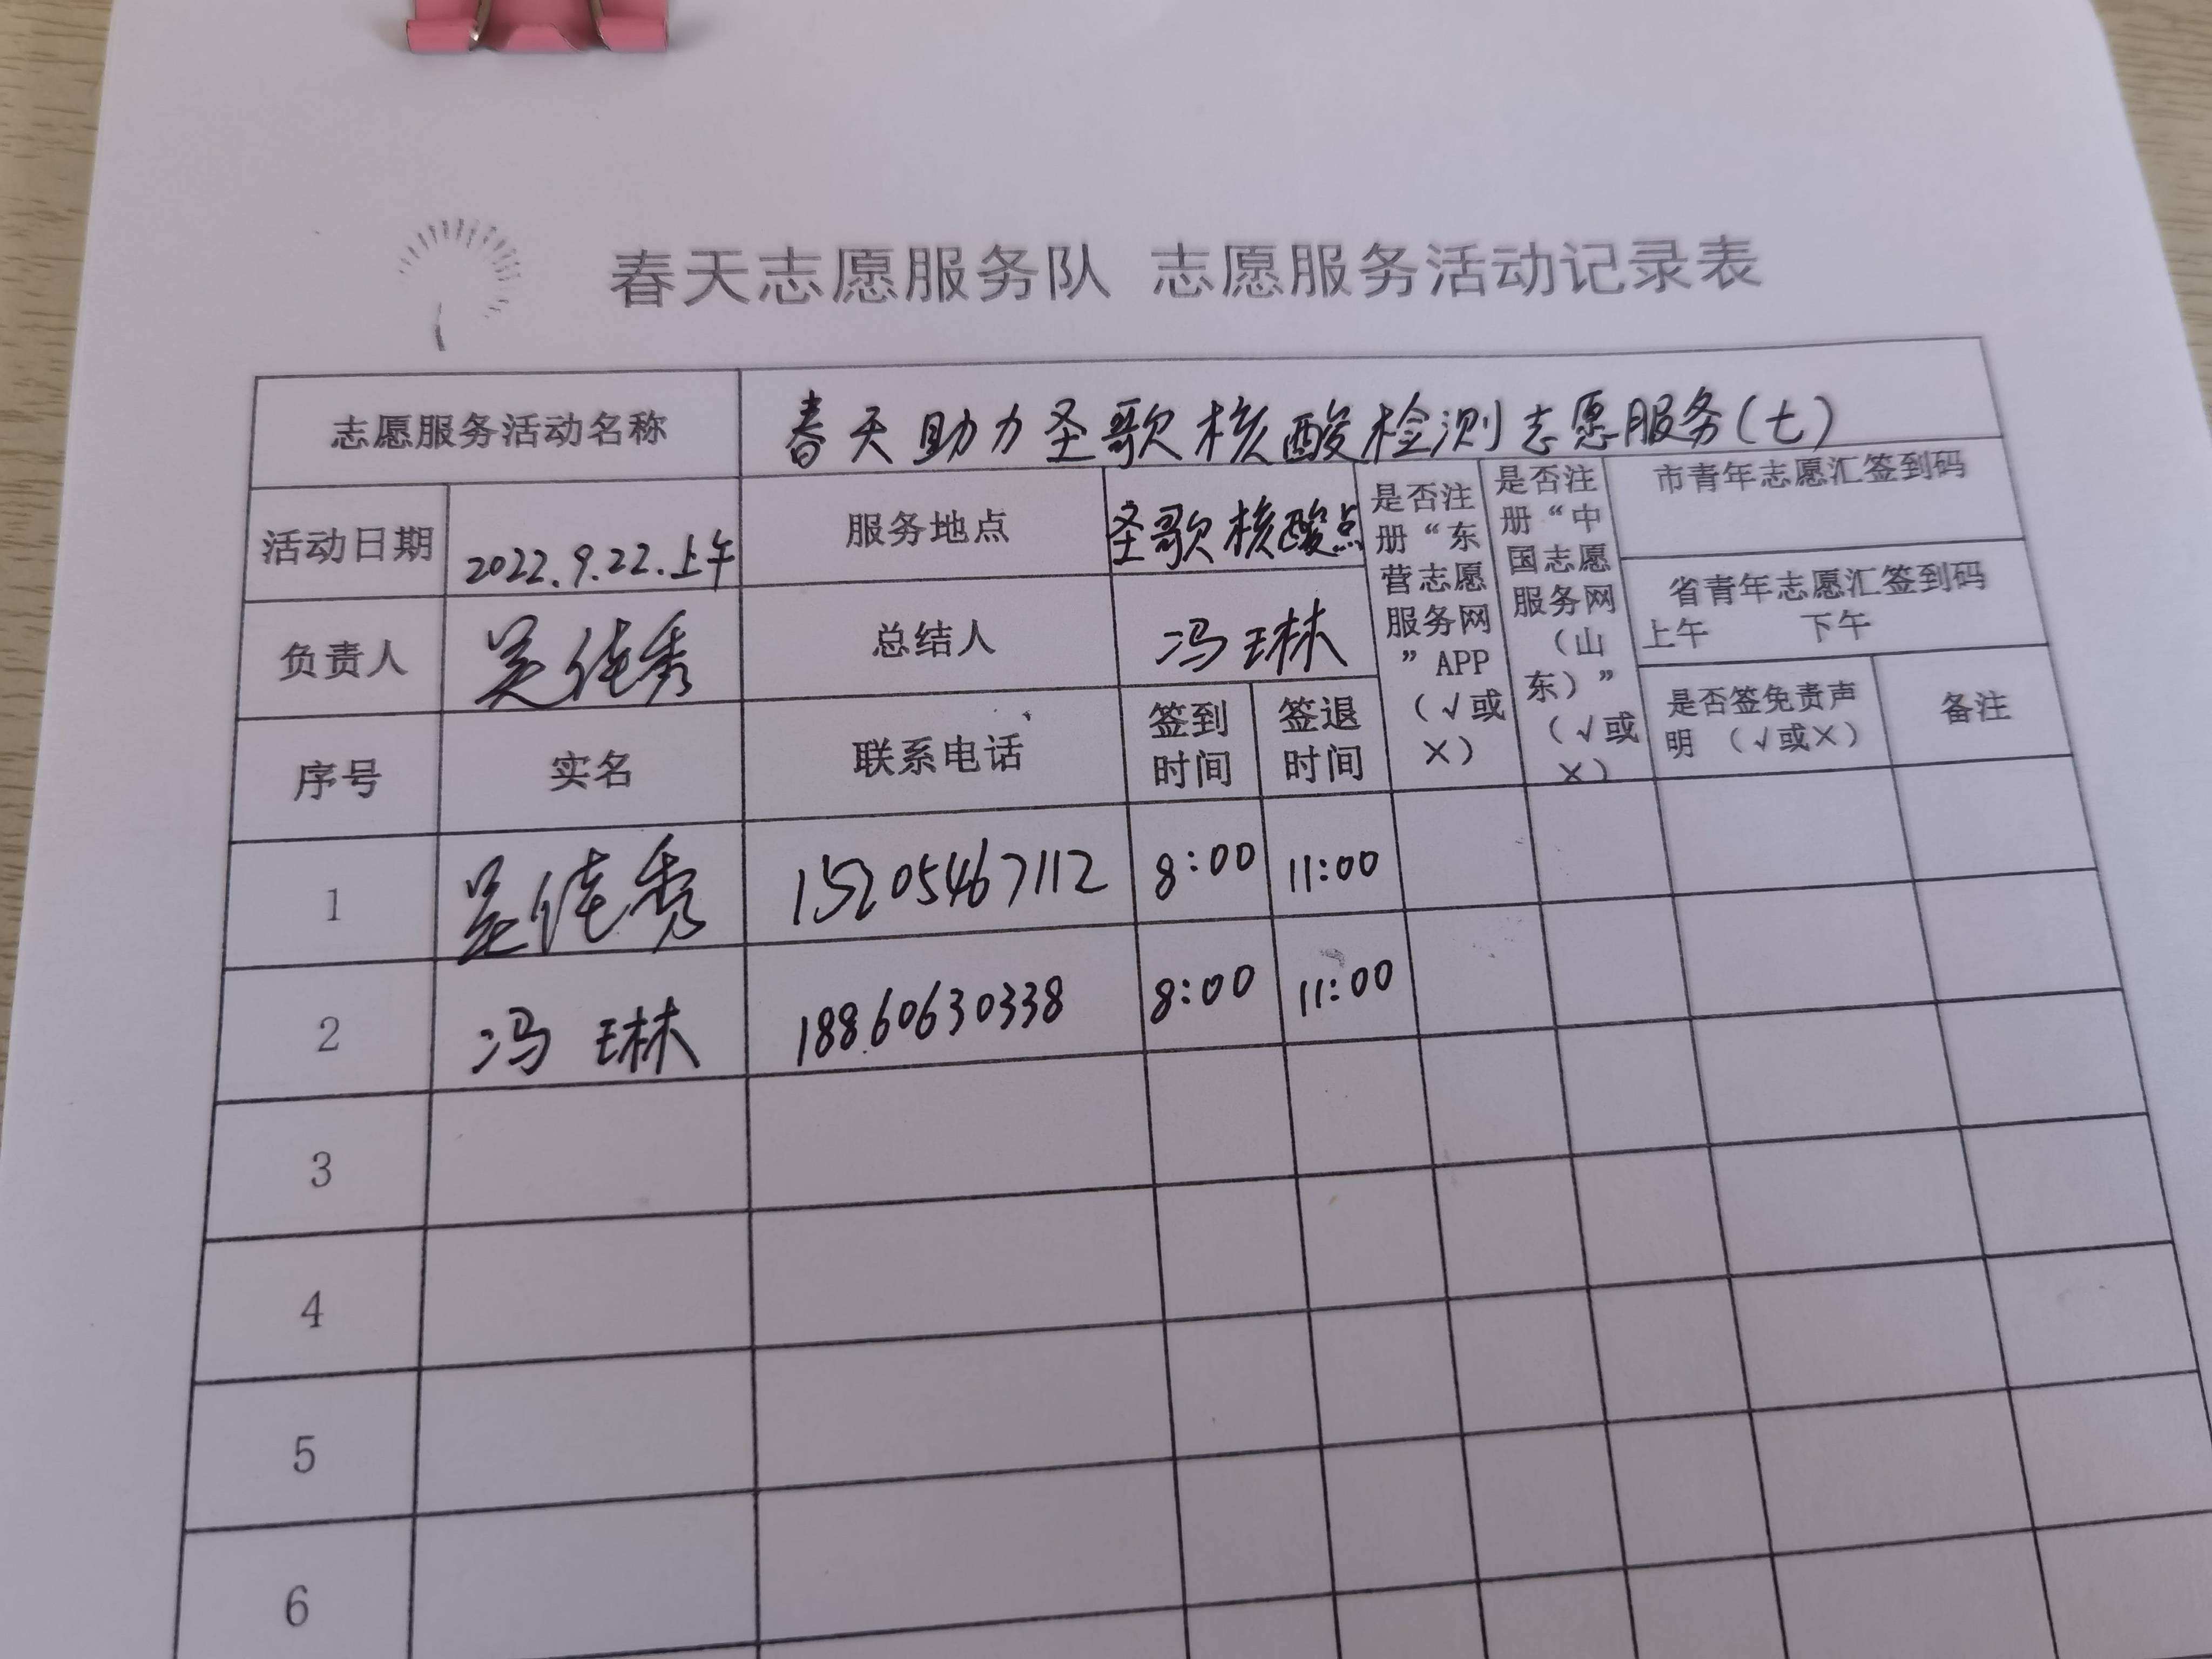 春天志愿服务队 志愿服务活动记录表
志愿服务活动名称 春天助力圣歌核酸检测志愿服务(七)
活动日期 2022.9.22.上午 服务地点 圣歌核酸点
是否注册“东营志愿服务网”APP（√或×）
是否注册“中国志愿服务网（山东）”（√或×）
市青年志愿汇签到码
省青年志愿汇签到码
上午 下午
负责人 吴佳秀 总结人 冯琳
序号 实名 联系电话 签到时间 签退时间 是否签免责声明（√或×） 备注
1 吴佳秀 15205467112 8:00 11:00
2 冯琳 18860630338 8:00 11:00
3
4
5
6